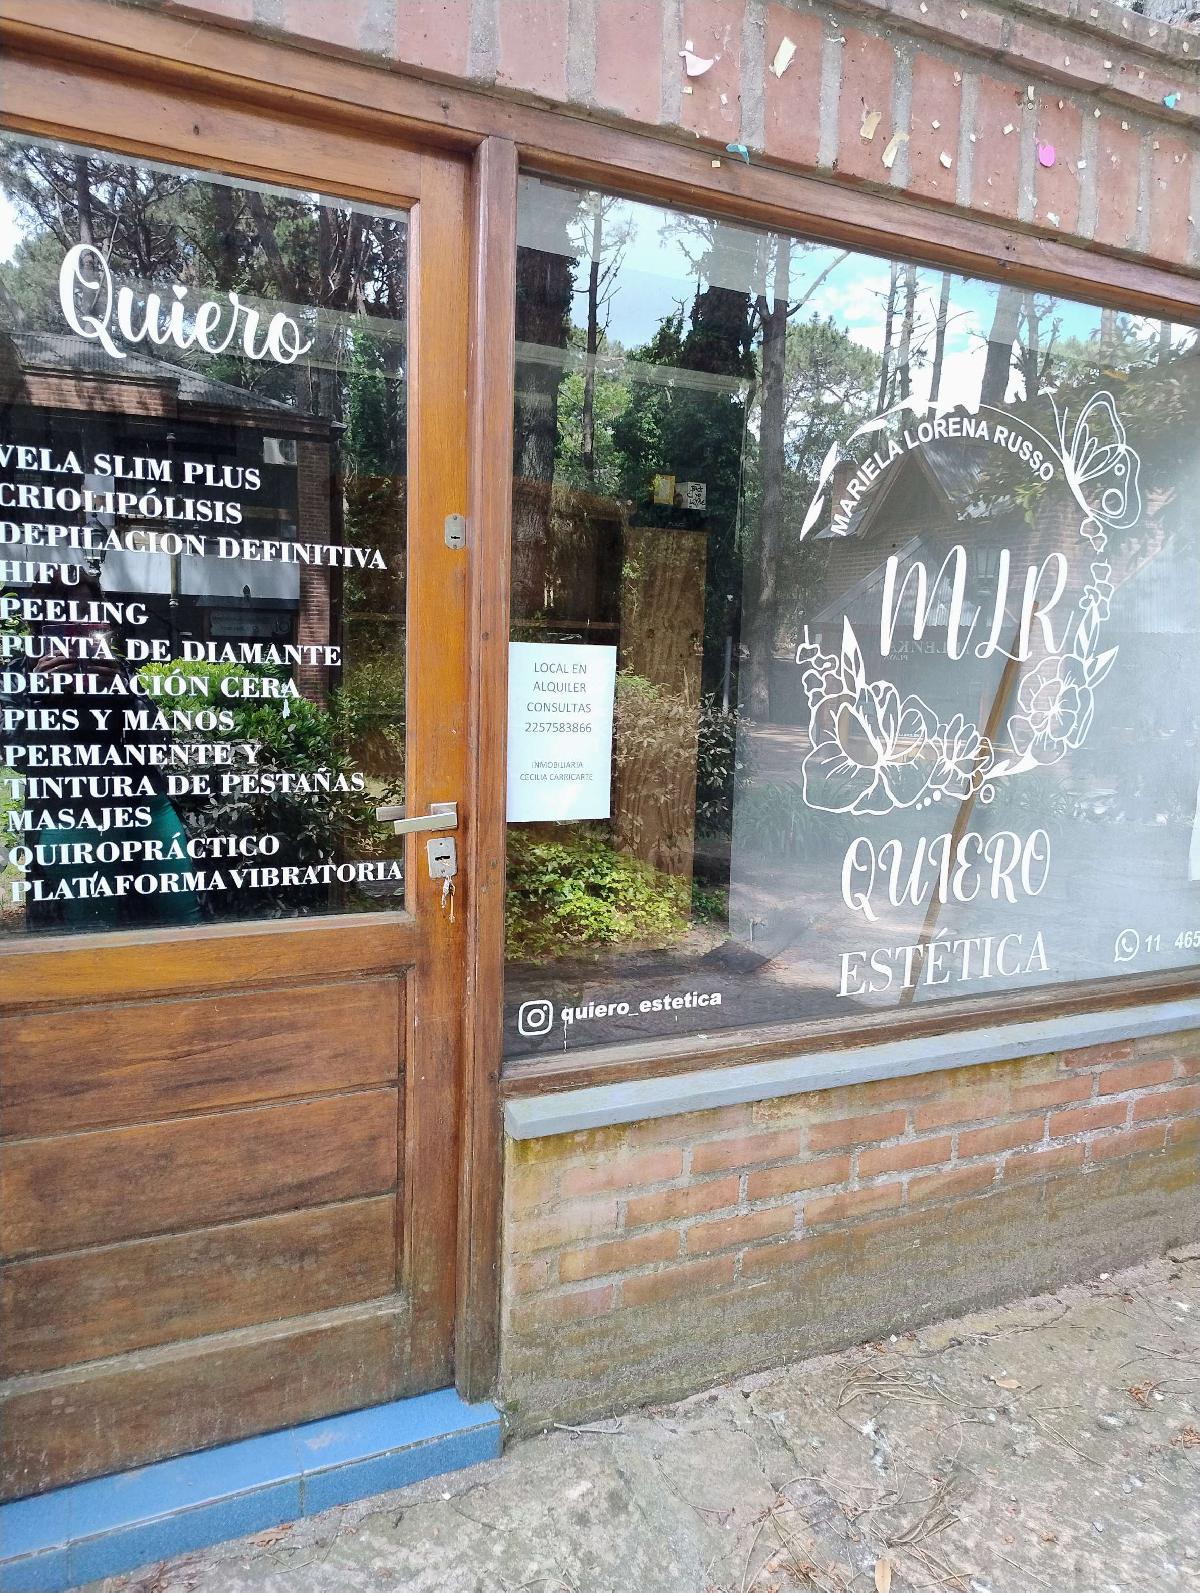 Quiero
VELA SLIM PLUS
CRIOLIPÓLISIS
DEPILACION DEFINITIVA
HIFU
PEELING
PUNTA DE DIAMANTE
DEPILACIÓN CERA
PIES Y MANOS
PERMANENTE Y
TINTURA DE PESTAÑAS
MASAJES
QUIROPRÁCTICO
PLATAFORMA VIBRATORIA
LOCAL EN
ALQUILER
CONSULTAS
2257583866
INMOBILIARIA
CECILIA CARRICARTE
MARIELA LORENA RUSSO
MLR
QUIERO
ESTÉTICA
11 465
quiero_estetica